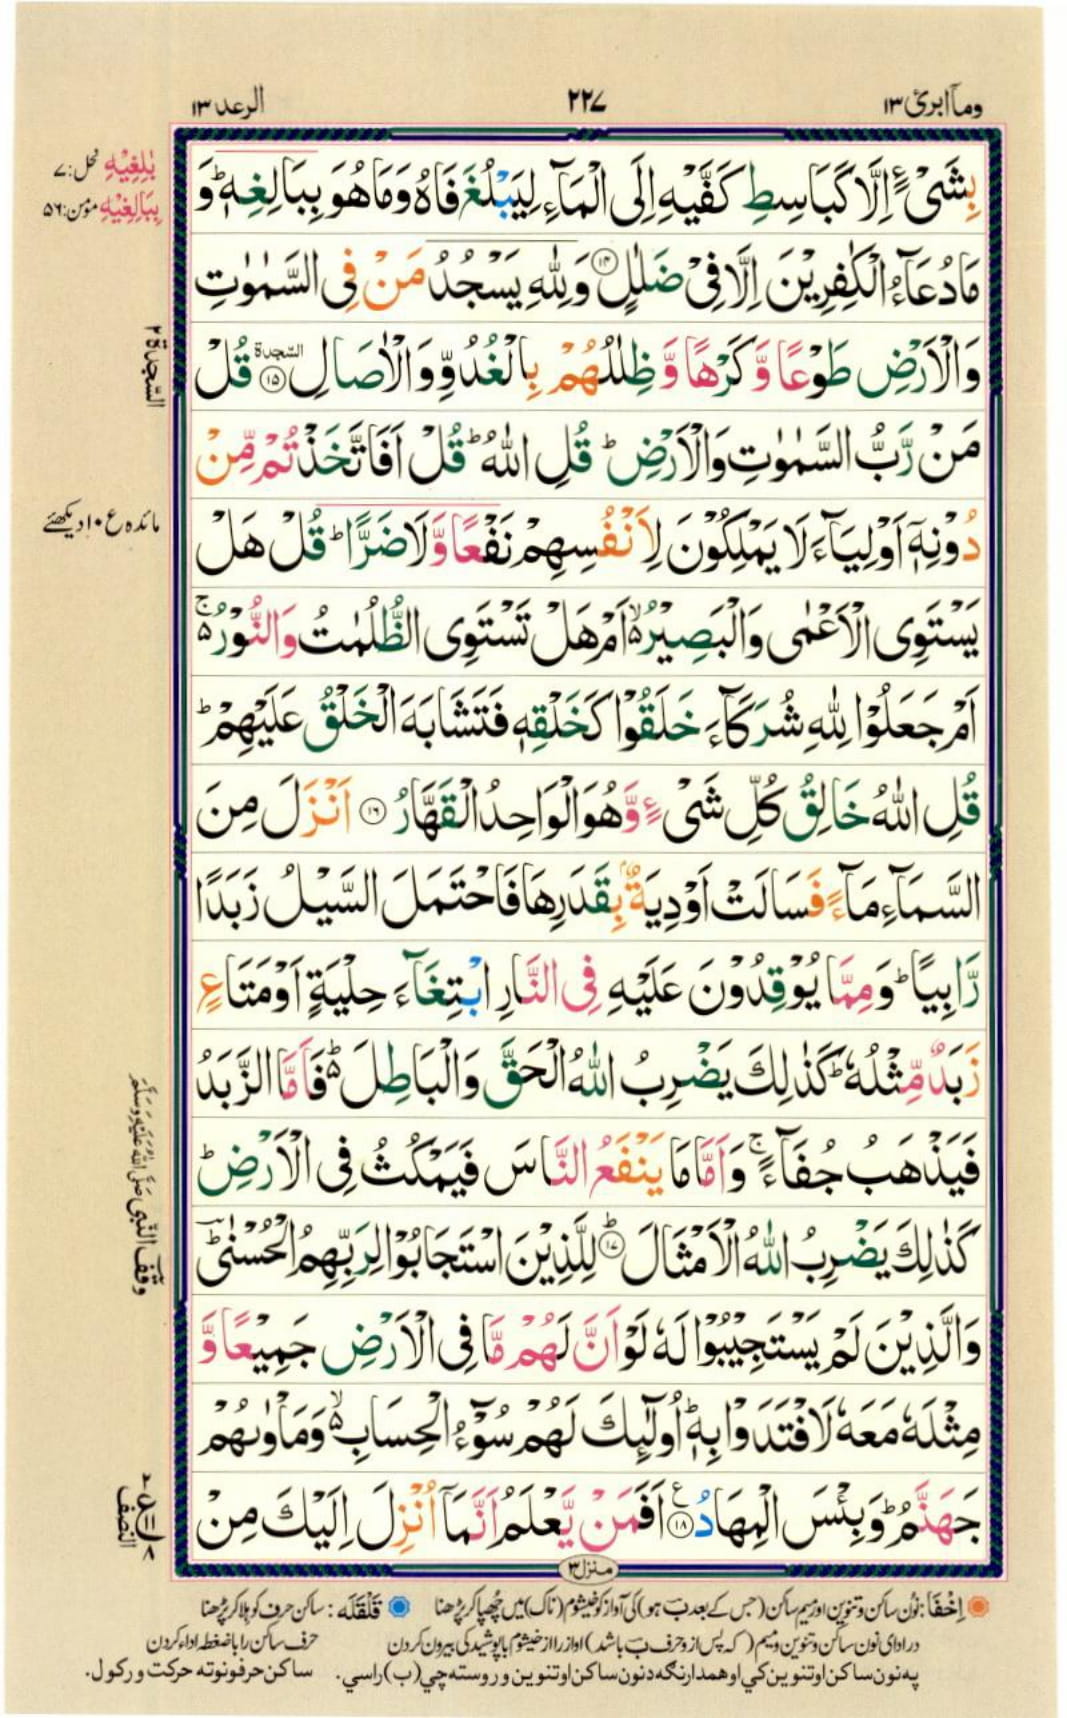 ومآ ابرئ ١٣
٢٢٧
الرعد ١٣
بِشَیْءٍ اِلَّا كَبَاسِطِ كَفَّیْهِ اِلَی الْمَآءِ لِیَبْلُغَ فَاهُ وَمَا هُوَ بِبَالِغِهٖ ؕ وَ
مَا دُعَآءُ الْكٰفِرِیْنَ اِلَّا فِیْ ضَلٰلٍ ۝۱۴ وَلِلّٰهِ یَسْجُدُ مَنْ فِی السَّمٰوٰتِ
وَالْاَرْضِ طَوْعًا وَّكَرْهًا وَّظِلٰلُهُمْ بِالْغُدُوِّ وَالْاٰصَالِ السجدة ۝۱۵ قُلْ
مَنْ رَّبُّ السَّمٰوٰتِ وَالْاَرْضِ ؕ قُلِ اللّٰهُ ؕ قُلْ اَفَاتَّخَذْتُمْ مِّنْ
دُوْنِهٖۤ اَوْلِیَآءَ لَا یَمْلِكُوْنَ لِاَنْفُسِهِمْ نَفْعًا وَّلَا ضَرًّا ؕ قُلْ هَلْ
یَسْتَوِی الْاَعْمٰی وَالْبَصِیْرُ ۙ۬ اَمْ هَلْ تَسْتَوِی الظُّلُمٰتُ وَالنُّوْرُ ۚ۬
اَمْ جَعَلُوْا لِلّٰهِ شُرَكَآءَ خَلَقُوْا كَخَلْقِهٖ فَتَشَابَهَ الْخَلْقُ عَلَیْهِمْ ؕ
قُلِ اللّٰهُ خَالِقُ كُلِّ شَیْءٍ وَّهُوَ الْوَاحِدُ الْقَهَّارُ ۝۱۶ اَنْزَلَ مِنَ
السَّمَآءِ مَآءً فَسَالَتْ اَوْدِیَةٌۢ بِقَدَرِهَا فَاحْتَمَلَ السَّیْلُ زَبَدًا
رَّابِیًا ؕ وَمِمَّا یُوْقِدُوْنَ عَلَیْهِ فِی النَّارِ ابْتِغَآءَ حِلْیَةٍ اَوْ مَتَاعٍ
زَبَدٌ مِّثْلُهٗ ؕ كَذٰلِكَ یَضْرِبُ اللّٰهُ الْحَقَّ وَالْبَاطِلَ ؕ۬ فَاَمَّا الزَّبَدُ
فَیَذْهَبُ جُفَآءً ۚ وَاَمَّا مَا یَنْفَعُ النَّاسَ فَیَمْكُثُ فِی الْاَرْضِ ؕ
كَذٰلِكَ یَضْرِبُ اللّٰهُ الْاَمْثَالَ ؕ۝۱۷ لِلَّذِیْنَ اسْتَجَابُوْا لِرَبِّهِمُ الْحُسْنٰی ؕ
وَالَّذِیْنَ لَمْ یَسْتَجِیْبُوْا لَهٗ لَوْ اَنَّ لَهُمْ مَّا فِی الْاَرْضِ جَمِیْعًا وَّ
مِثْلَهٗ مَعَهٗ لَافْتَدَوْا بِهٖ ؕ اُولٰٓئِكَ لَهُمْ سُوْٓءُ الْحِسَابِ ۙ۬ وَمَاْوٰىهُمْ
جَهَنَّمُ ؕ وَبِئْسَ الْمِهَادُ ۝۱۸ ع اَفَمَنْ یَّعْلَمُ اَنَّمَاۤ اُنْزِلَ اِلَیْكَ مِنْ
بٰلِغِیْهِ نحل: ۷
بِبَالِغِیْهِ مؤمن: ۵۶
السّجدة ۲
مائدہ ع ۱۰ دیکھئے
وقف النّبی صَلَّی اللّٰه عَلَیْهِ وَسَلَّمَ
النصف
منزل ۳
اِخْفَا: نُون ساکن و تنوین اور میم ساکن (جس کے بعد ب ہو) کی آواز کو خیشوم (ناک) میں چُھپا کر پڑھنا
قَلْقَلَه: ساکن حرف کو ہلا کر پڑھنا
در ادای نون ساکن و تنوین و میم (که پس از و حرف ب باشد) آواز را از خیشوم با پوشیدگی بیرون کردن
حرف ساکن را با ضغط اداء کردن
په نون ساکن او تنوین کي او همدارنګه د نون ساکن او تنوین وروسته چي (ب) راسي.
ساکن حرفونو ته حرکت ورکول.